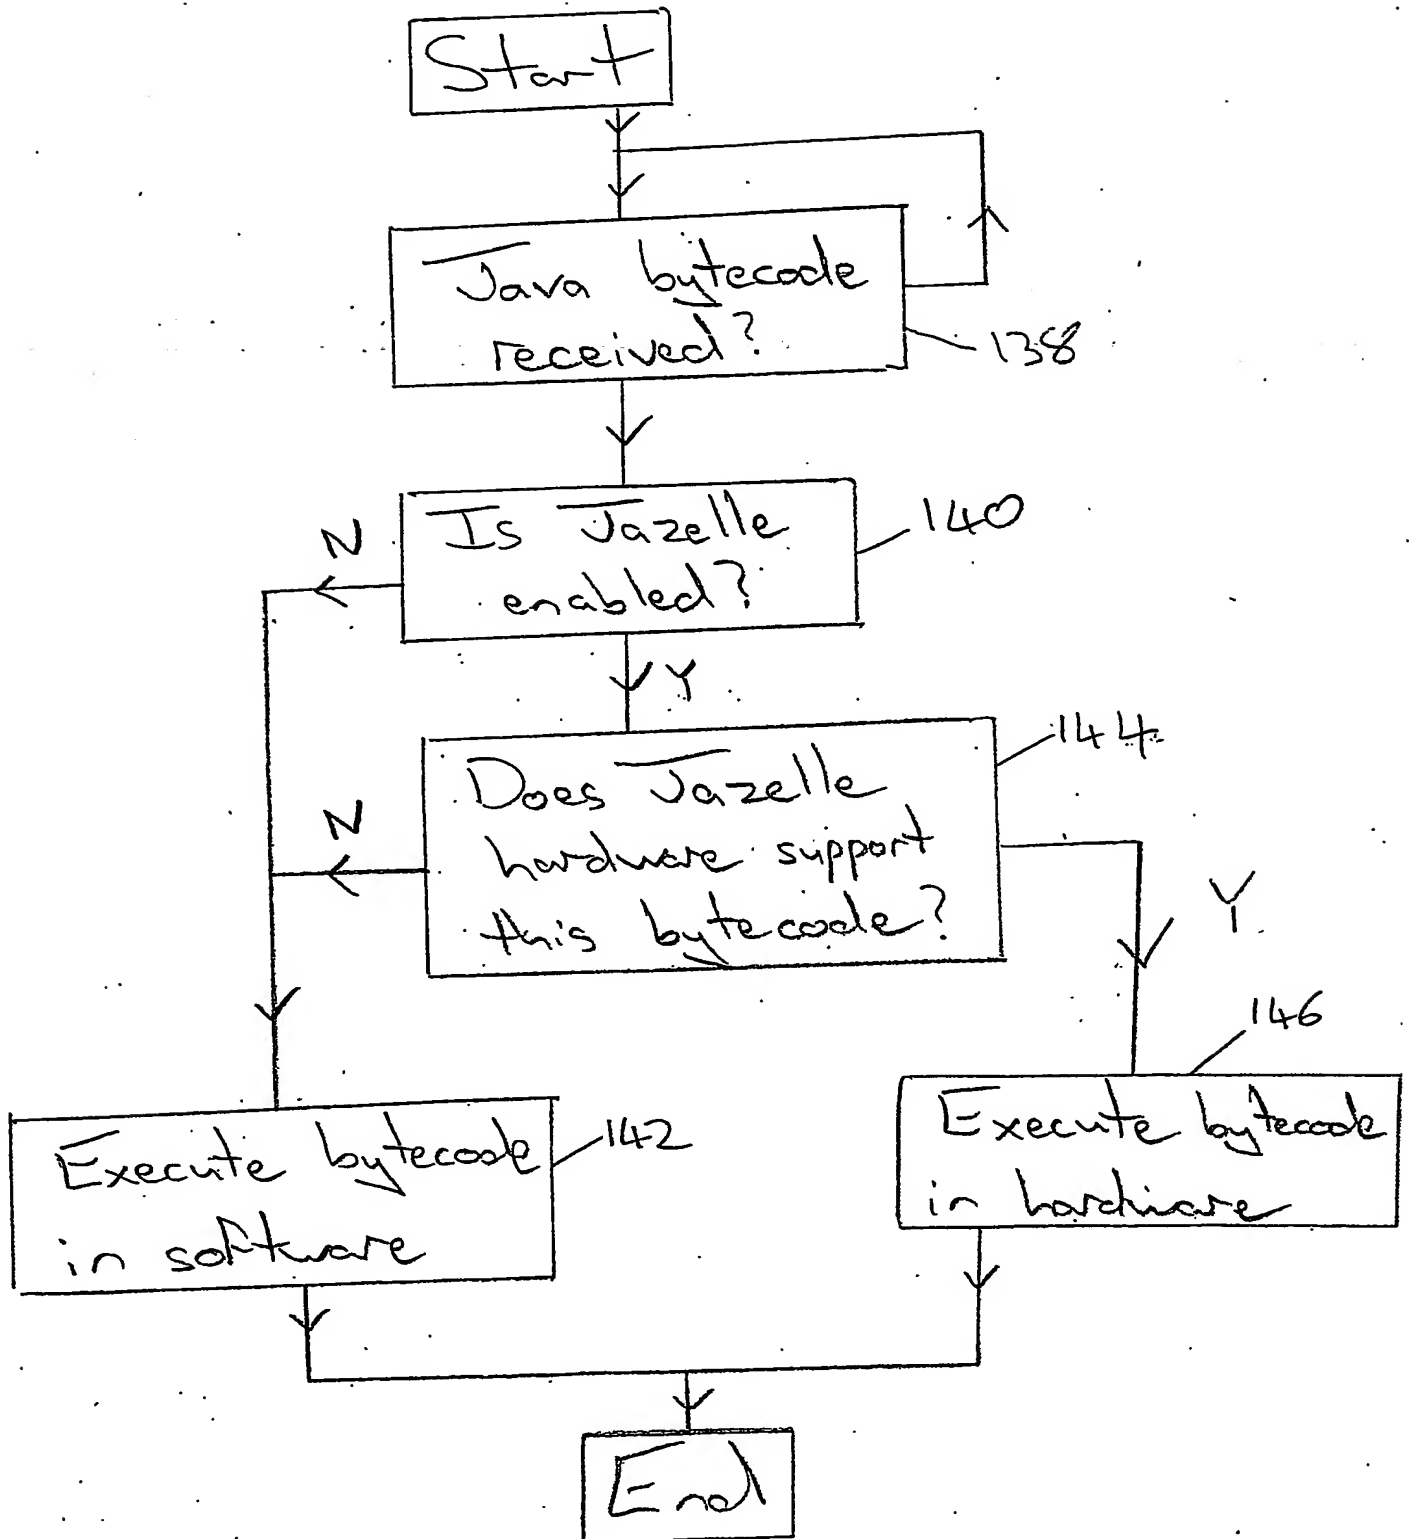 Start
Java bytecode
received?
138
Is Jazelle
enabled?
140
N
Y
Does Jazelle
hardware support
this bytecode?
144
N
Y
Execute bytecode
in software
142
Execute bytecode
in hardware
146
End